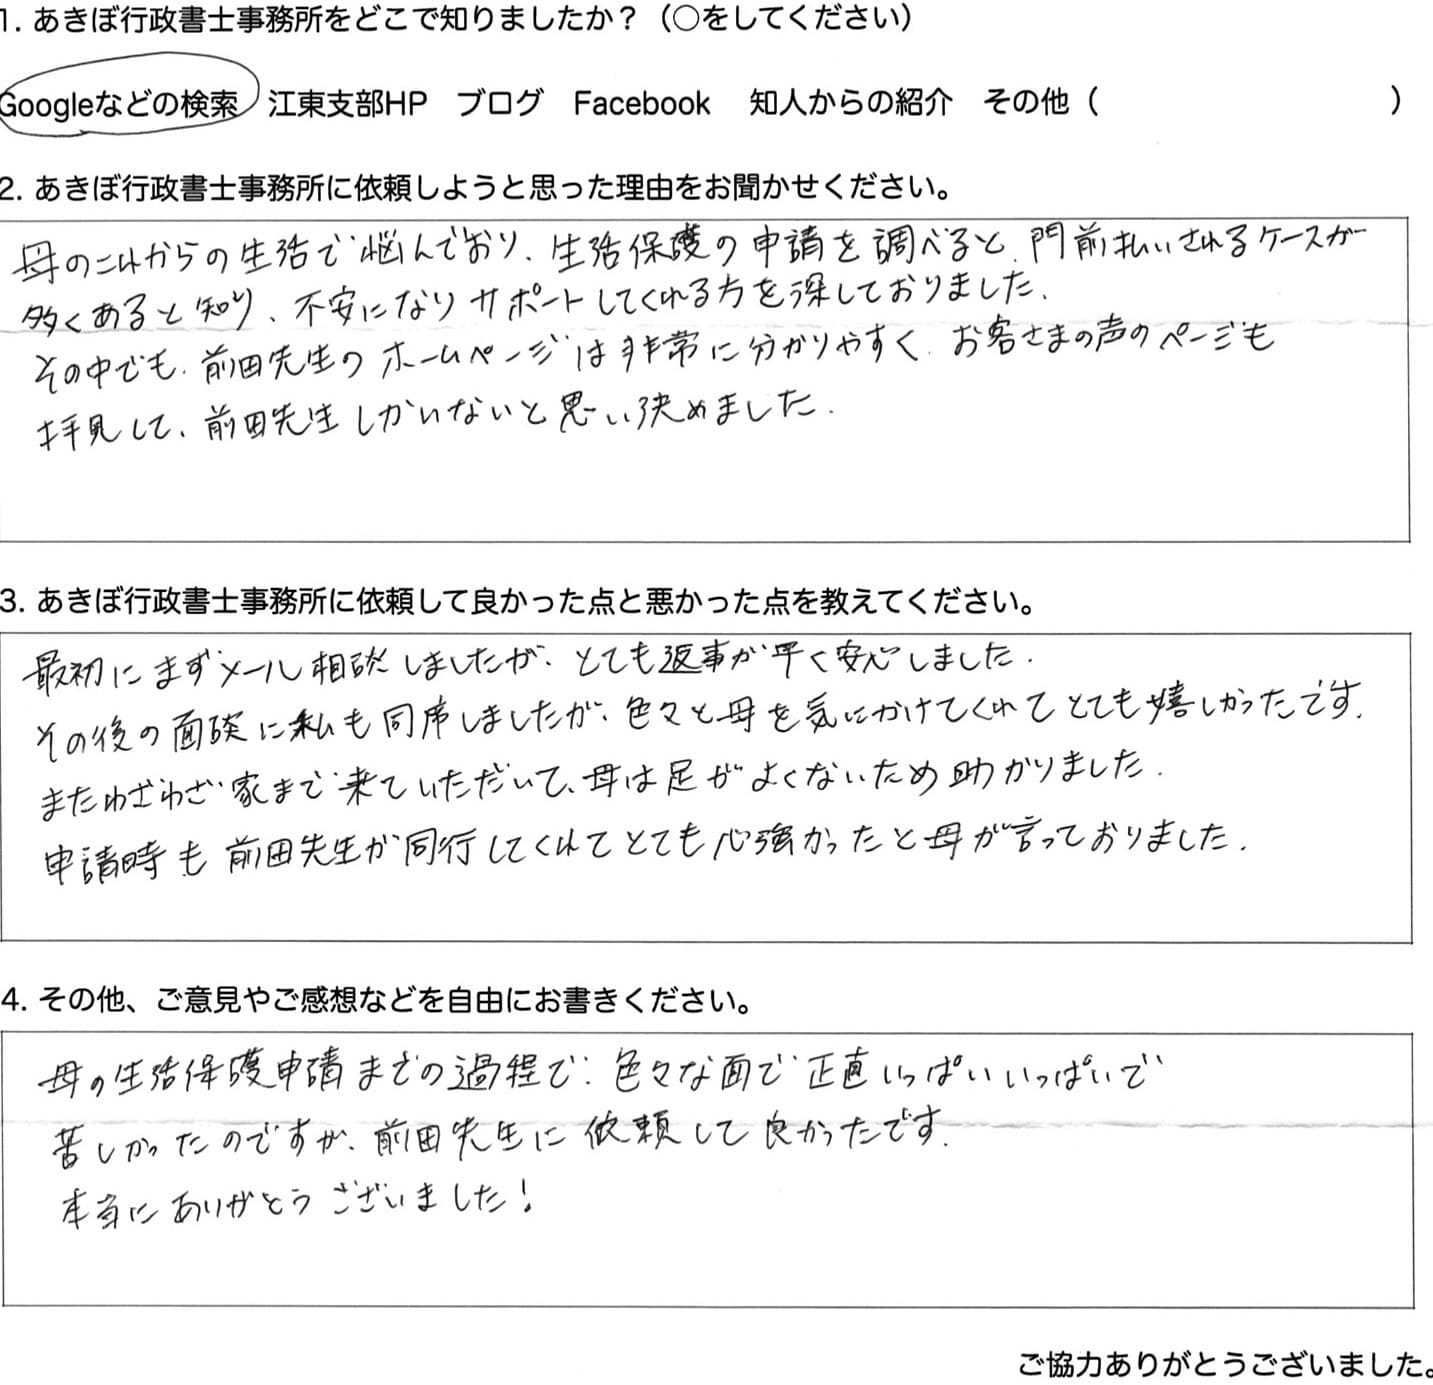 1. あきぼ行政書士事務所をどこで知りましたか？（○をしてください）
Googleなどの検索　江東支部HP　ブログ　Facebook　知人からの紹介　その他（　　　　　　　　　）
2. あきぼ行政書士事務所に依頼しようと思った理由をお聞かせください。
母のこれからの生活で悩んでおり、生活保護の申請を調べると、門前払いされるケースが
多くあると知り、不安になりサポートしてくれる方を探しておりました。
その中でも、前田先生のホームページは非常に分かりやすく、お客さまの声のページも
拝見して、前田先生しかいないと思い決めました。
3. あきぼ行政書士事務所に依頼して良かった点と悪かった点を教えてください。
最初にまずメール相談しましたが、とても返事が早く安心しました。
その後の面談に私も同席しましたが、色々と母を気にかけてくれてとても嬉しかったです。
またわざわざ家まで来ていただいて、母は足がよくないため助かりました。
申請時も前田先生が同行してくれてとても心強かったと母が言っておりました。
4. その他、ご意見やご感想などを自由にお書きください。
母の生活保護申請までの過程で、色々な面で正直いっぱいいっぱいで
苦しかったのですが、前田先生に依頼して良かったです。
本当にありがとうございました！
ご協力ありがとうございました。